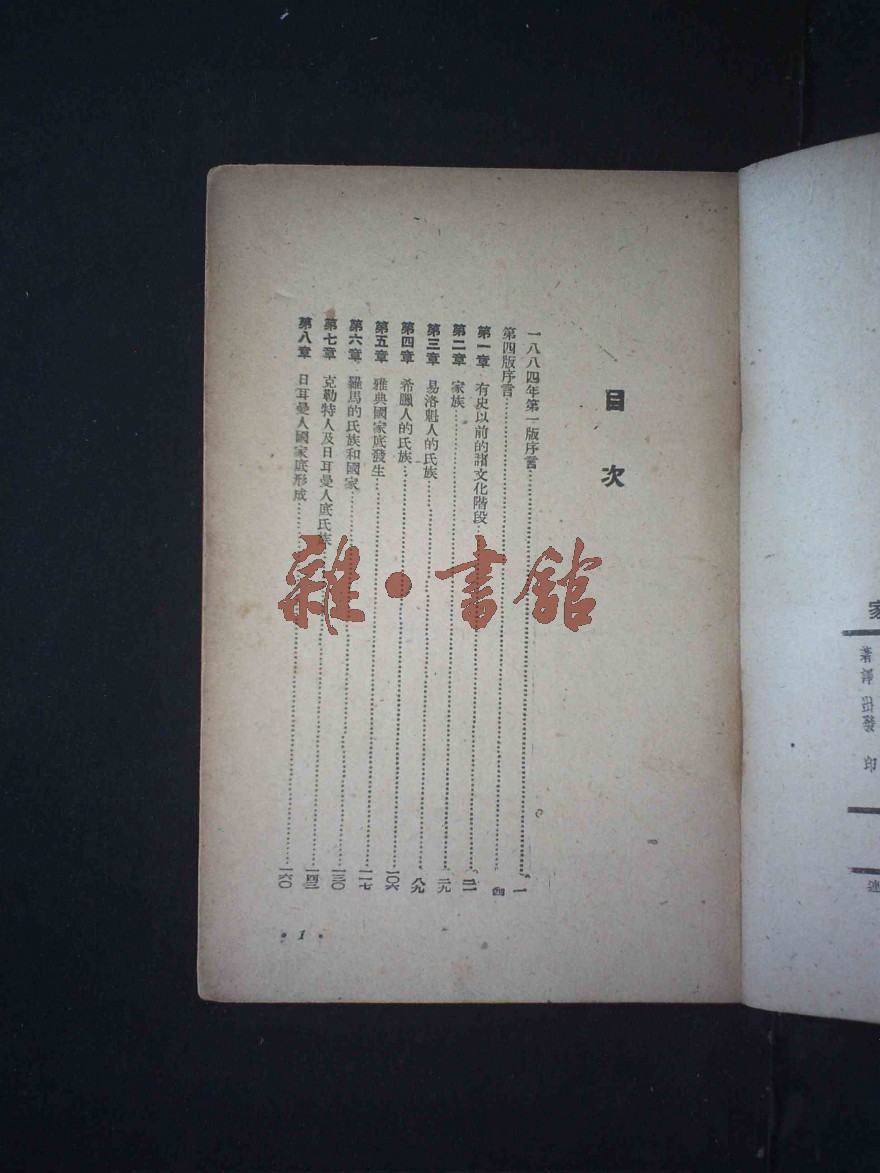 目次
一八八四年第一版序言 一
第四版序言 四
第一章 有史以前的諸文化階段 二一
第二章 家族 二九
第三章 易洛魁人的氏族 八九
第四章 希臘人的氏族 一〇六
第五章 雅典國家底發生 一一七
第六章 羅馬的氏族和國家 一三〇
第七章 克勒特人及日耳曼人底氏族 一四三
第八章 日耳曼人國家底形成 一六〇
• 1 •
雜•書館
家
著
譯
出
發
印